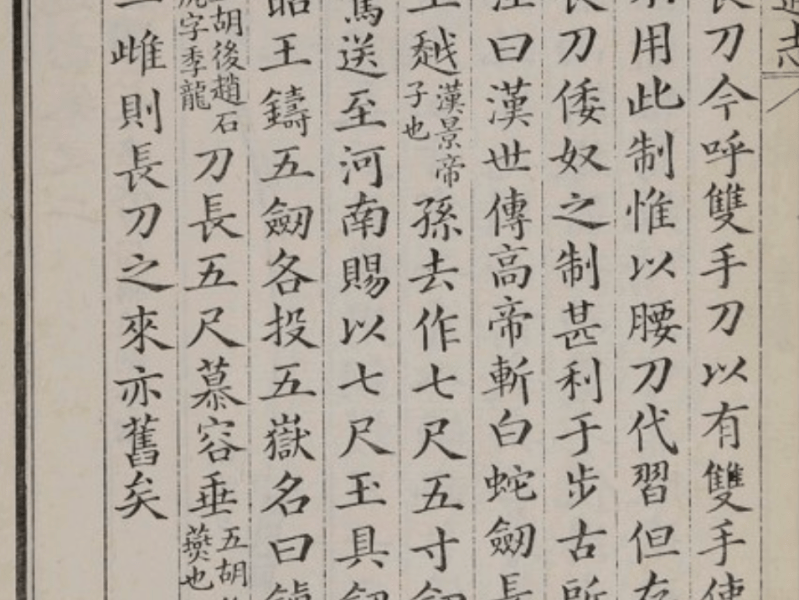 長刀今呼雙手刀以有雙手使
用此制惟以腰刀代習但存
長刀倭奴之制甚利于步古所
注曰漢世傳高帝斬白蛇劒長
王越漢景帝子也孫去作七尺五寸劒
篤送至河南賜以七尺玉具劒
昭王鑄五劒各投五嶽名曰鎮
五胡後趙石虎字季龍刀長五尺慕容垂五胡燕也
雌則長刀之來亦舊矣